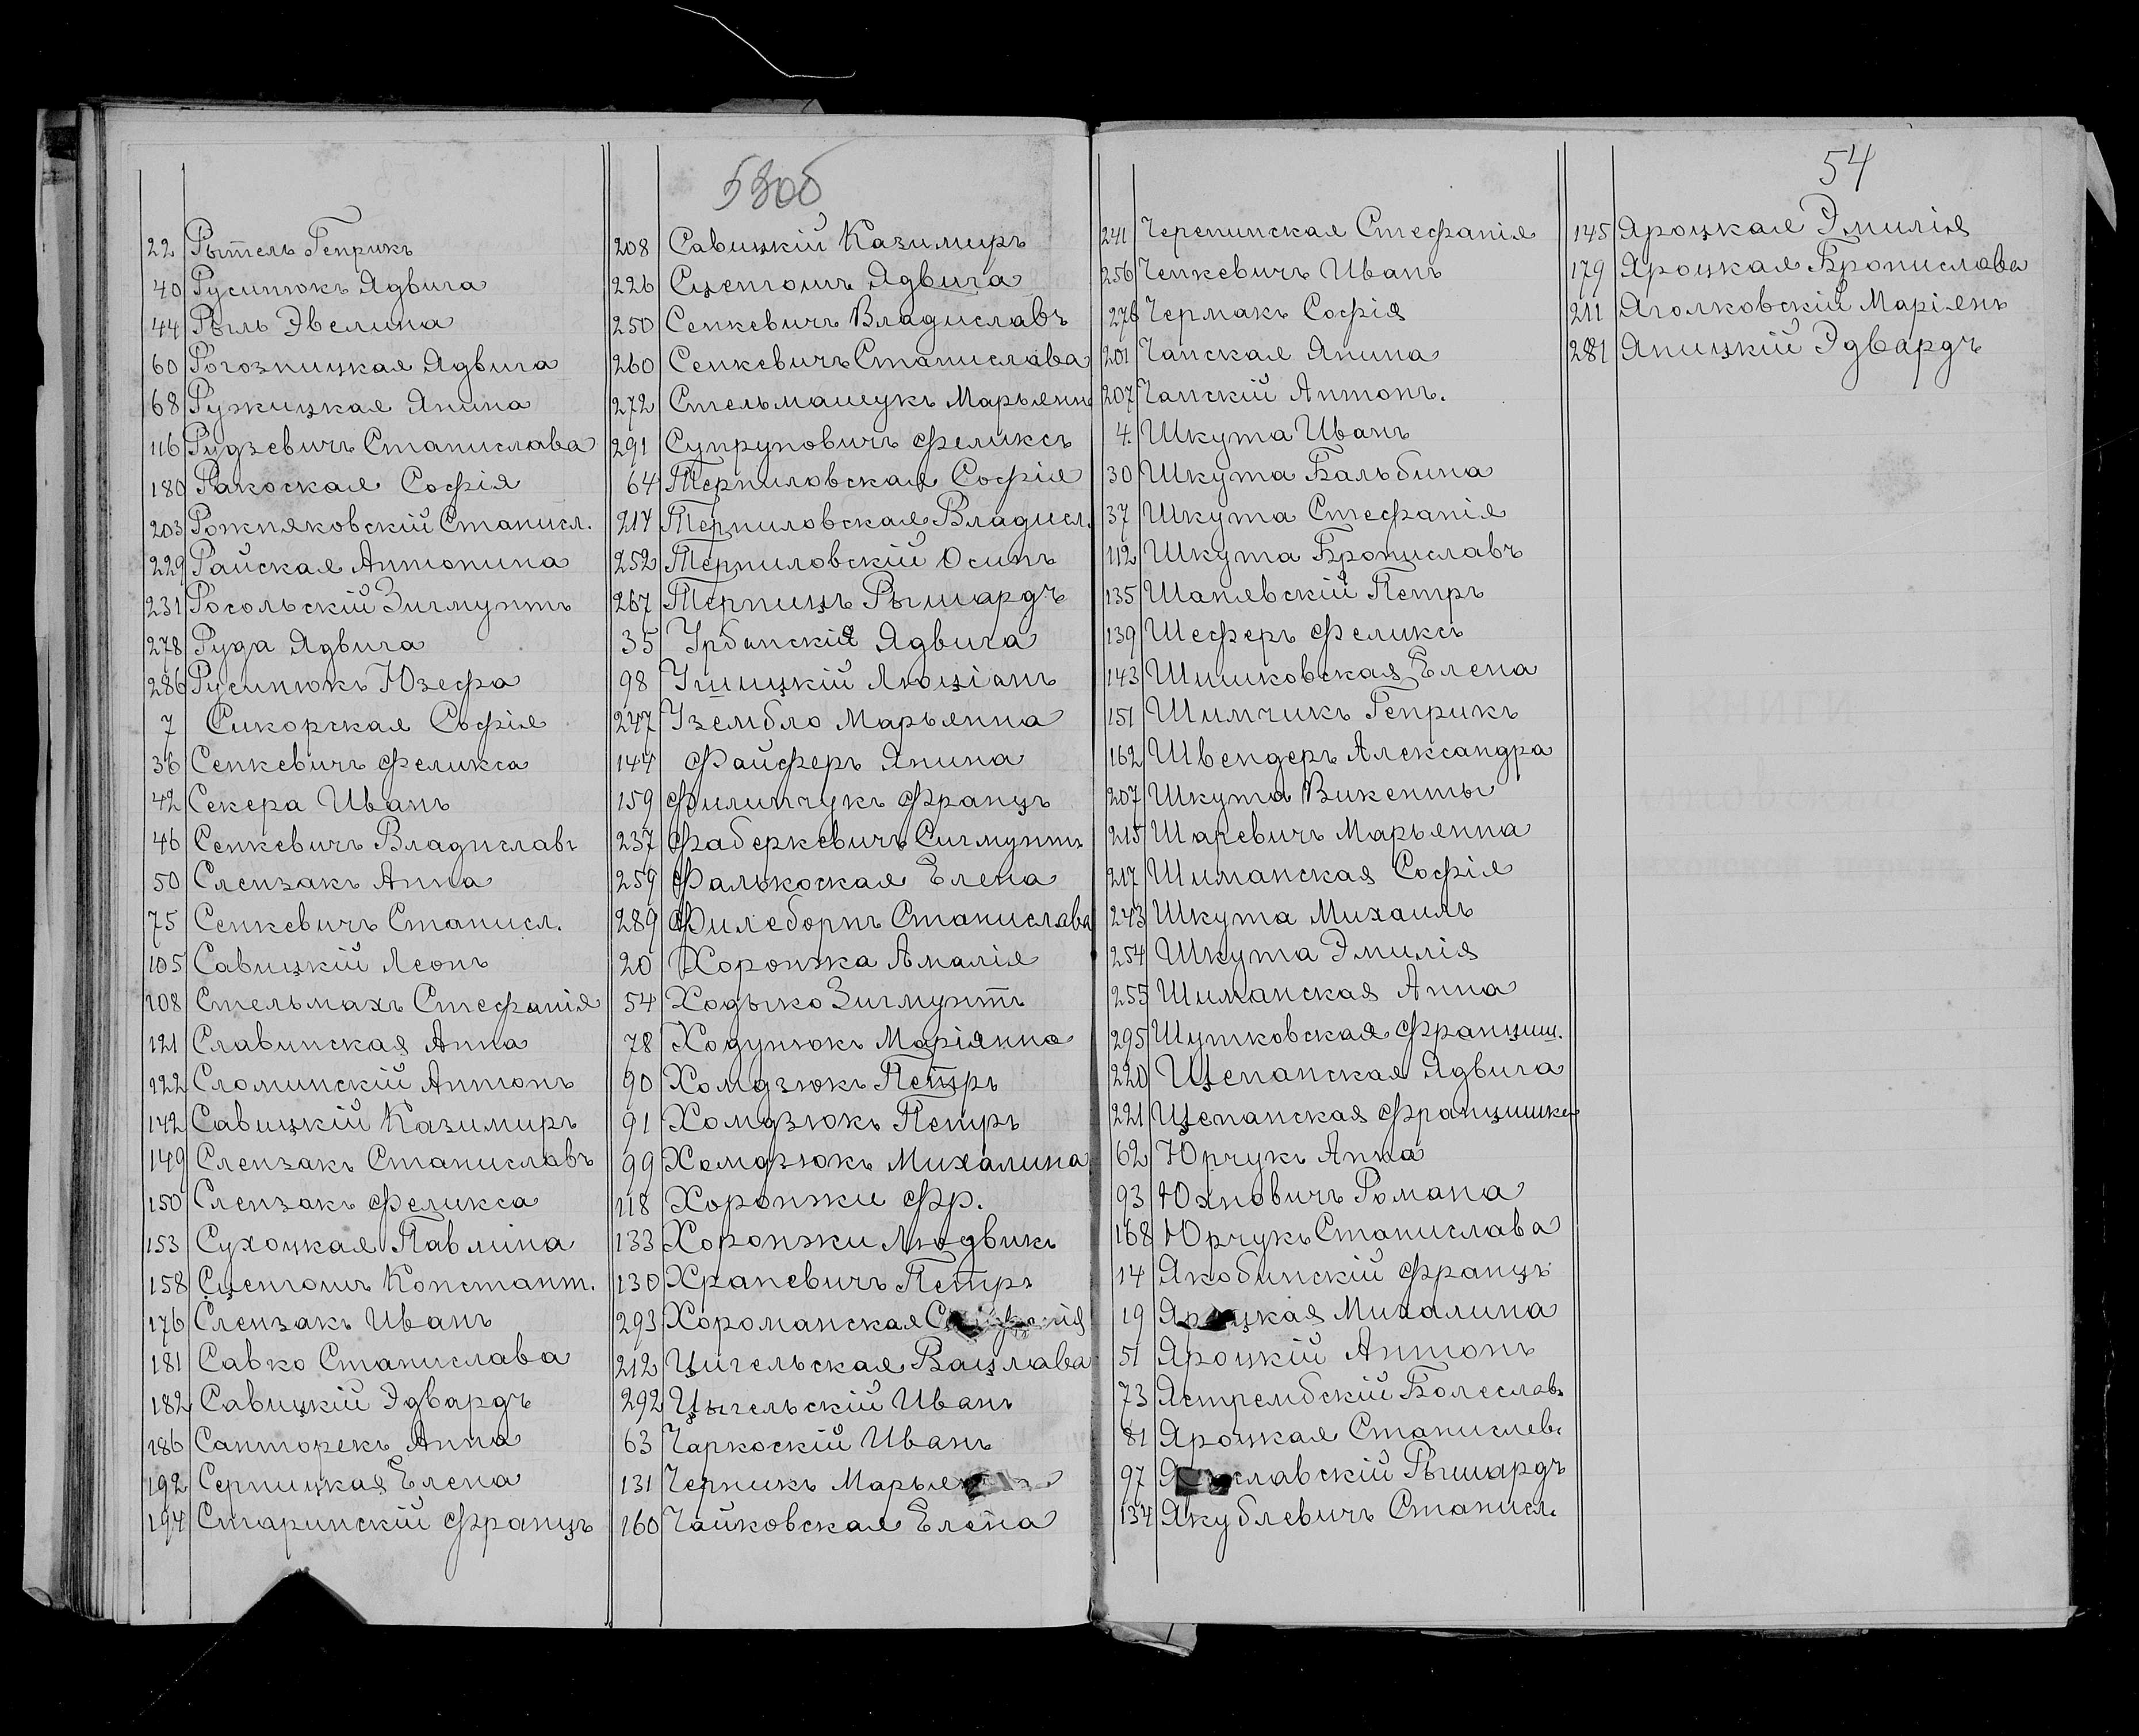 53об
22 Рытель Генрикъ
40 Русинюкъ Ядвига
44 Рыль Эвелина
60 Рогозницкая Ядвига
68 Ружицкая Янина
116 Рудзевичъ Станислава
180 Ракоская Софія
203 Рожняковскій Станисл.
229 Райская Антонина
231 Росольскій Зигмунтъ
278 Руда Ядвига
286 Русинюкъ Юзефа
7 Сикорская Софія
36 Сенкевичъ Феликса
42 Секера Иванъ
46 Сенкевичъ Владиславъ
50 Слензакъ Анна
75 Сенкевичъ Станисл.
105 Савицкій Леонъ
108 Стельмахъ Стефанія
121 Славинская Анна
122 Сломинскій Антонъ
142 Савицкій Казимиръ
149 Слензакъ Станиславъ
150 Слензакъ Феликса
153 Сухоцкая Павлина
158 Сцентошъ Констант.
176 Слензакъ Иванъ
181 Савко Станислава
182 Савицкій Эдвардъ
186 Санторекъ Анна
192 Серницкая Елена
194 Старинскій Францъ
208 Савицкій Казимиръ
226 Сцентошъ Ядвига
250 Сенкевичъ Владиславъ
260 Сенкевичъ Станислава
272 Стельмашукъ Марьянна
291 Супруновичъ Феликсъ
64 Терпиловская Софія
217 Терпиловская Владисл.
252 Терпиловскій Осипъ
267 Терпицъ Рышардъ
35 Урбанскія Ядвига
98 Ушицкій Люціанъ
247 Узембло Марьянна
144 Файферъ Янина
159 Филипчукъ Францъ
237 Фаберкевичъ Сигмунтъ
259 Фалькоская Елена
289 Филеборнъ Станислава
20 Хоронжа Амалія
54 Ходыко Зигмунтъ
78 Ходунюкъ Маріянна
90 Хомдзюкъ Петръ
91 Хомдзюкъ Петръ
99 Хомдзюкъ Михалина
118 Хоронжи Фр.
133 Хоронжи Людвикъ
130 Храпевичъ Петръ
293 Хороманская
212 Цигельская Вацлава
292 Цыгельскій Иванъ
63 Чаркоскій Иванъ
131 Черникъ
160 Чайковская Елена
241 Черепинская Стефанія
256 Ченкевичъ Иванъ
276 Чермакъ Софія
201 Чапская Янина
207 Чапскій Антонъ.
4. Шкута Иванъ
30 Шкута Бальбина
37 Шкута Стефанія
112 Шкута Брониславъ
135 Шаняевскій Петръ
139 Шеферъ Феликсъ
143 Шишковская Елена
151 Шимчикъ Генрикъ
162 Швендеръ Александра
207 Шкута Викенты
215 Шаревичъ Марьянна
217 Шиманская Софія
243 Шкута Михаилъ
254 Шкута Эмилія
255 Шиманская Анна
295 Шутковская Франциш.
220 Щепанская Ядвига
221 Щепанская Францишка
62 Юрчукъ Анна
93 Юхновичъ Романа
168 Юрчукъ Станислава
14 Якобинскій Францъ
19 Михалина
51 Яроцкій Антонъ
73 Ястрембскій Болеславъ
81 Яроцкая Станислав.
97 Рышардъ
134 Якублевичъ Станисл.
54
145 Яроцкая Эмилія
179 Яроцкая Бронислава
211 Яголковскій Маріянъ
281 Яницкій Эдвардъ